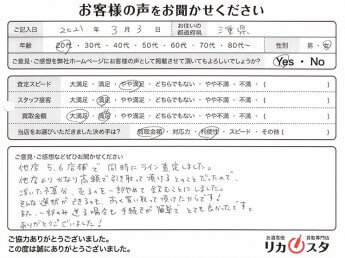 お客様の声をお聞かせください
ご記入日 2021年 3月 3日 お住いの都道府県 三重県
年齢 20代・30代・40代・50代・60代・70代・80代～ 性別 男・女
ご意見・ご感想を弊社ホームページにお客様の声として掲載させて頂いてもよろしいでしょうか? Yes・No
査定スピード 大満足・満足・やや満足・どちらでもない・やや不満・不満・( )
スタッフ接客 大満足・満足・やや満足・どちらでもない・やや不満・不満・( )
買取金額 大満足・満足・やや満足・どちらでもない・やや不満・不満・( )
当店をお選びいただきました決め手は? 買取金額・対応力・利便性・スピード・その他( )
ご意見・ご感想などぜひお聞かせください。
他店 5.6店舗で同時にライン査定しました。
他店よりかなり高額で引き取って頂けるとのことだったので、
浮いた予算分、売るのを一部やめて飲むことにしました。
そんな選択ができるのも、高く買い取って頂けたからです!
また、一部のみ送る場合も手続きが簡単でとても良かったです。
ありがとうございました!
ご協力ありがとうございました。
今後ともよろしくお願い致します。
お酒高価買取専門店
リカスタ